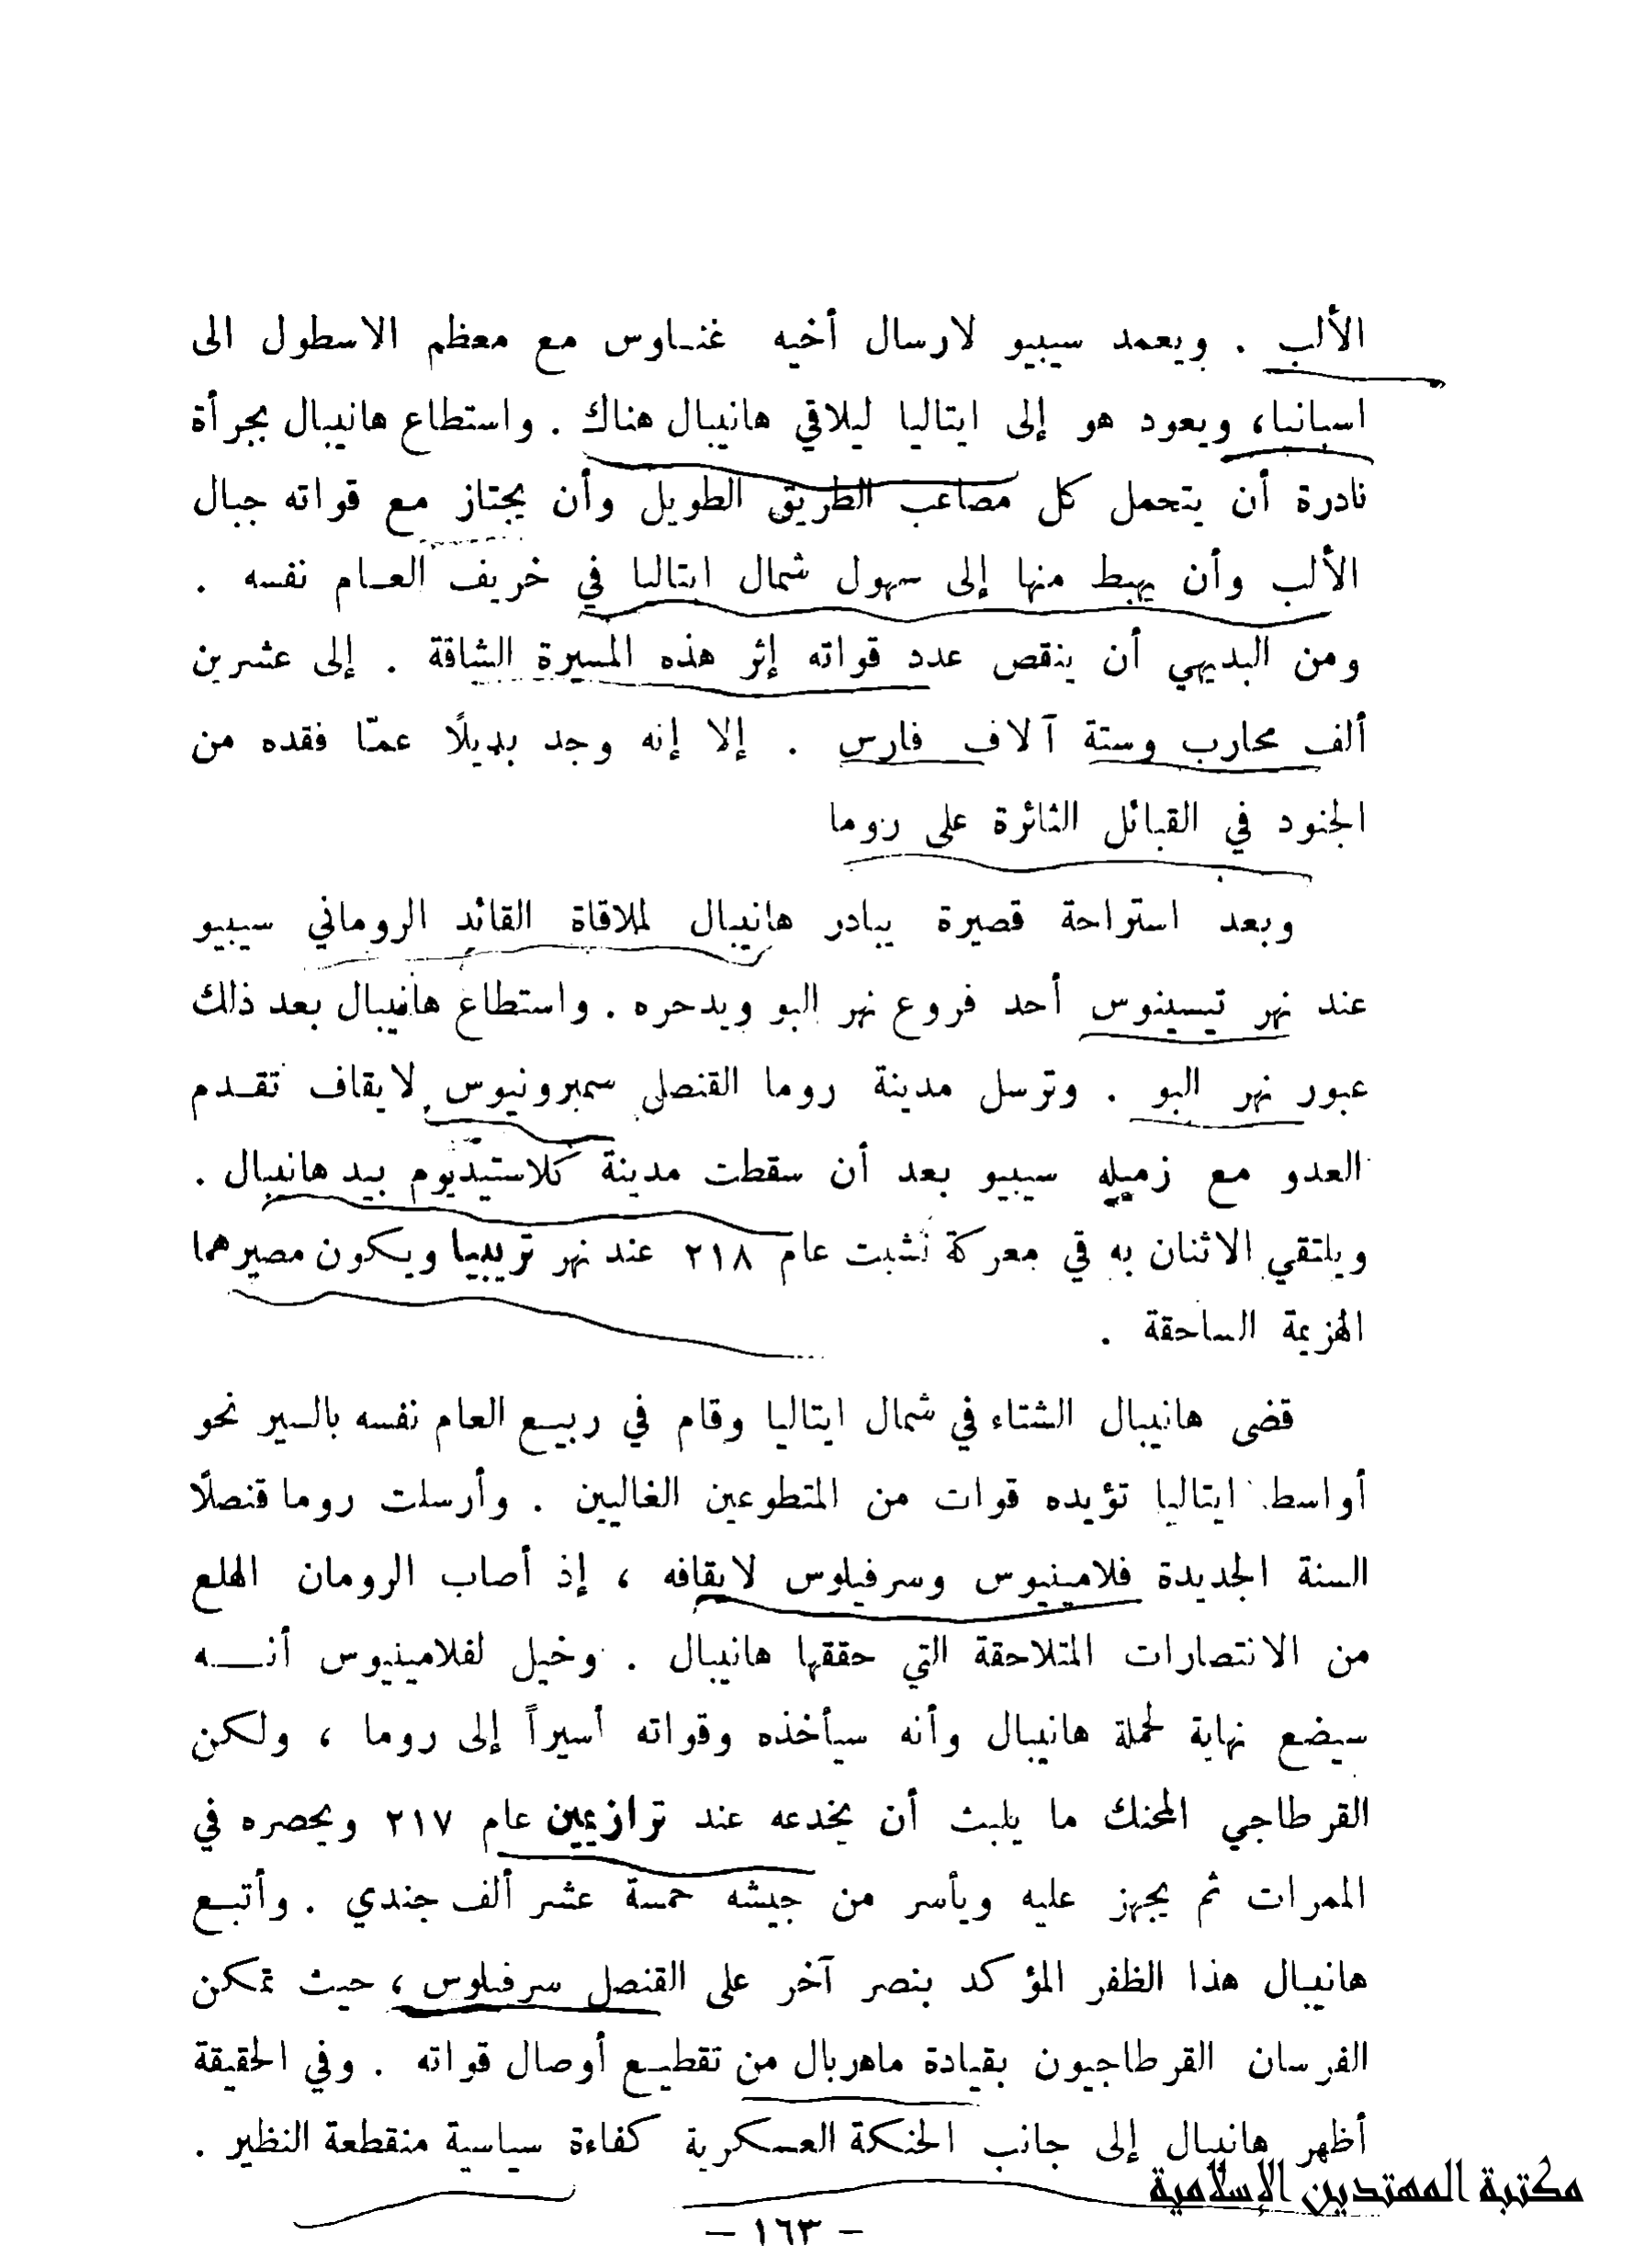 الألب . ويعمد سيبيو لارسال أخيه غنـاوس مع معظم الاسطول الى
اسبانيا، ويعود هو إلى ايتاليا ليلاقي هانيبال هناك . واستطاع هانيبال بجرأة
نادرة أن يتحمل كل مصاعب الطريق الطويل وأن يجتاز مع قواته جبال
الألب وأن يهبط منها إلى سهول شمال ايتاليا في خريف العـام نفسه .
ومن البديهي أن ينقص عدد قواته إثر هذه المسيرة الشاقة . إلى عشرين
ألف محارب وستة آلاف فارس . إلا إنه وجد بديلًا عمّا فقده من
الجنود في القبائل الثائرة على روما
وبعد استراحة قصيرة يبادر هانيبال لملاقاة القائد الروماني سيبيو
عند نهر تيسينوس أحد فروع نهر البو ويدحره . واستطاع هانيبال بعد ذلك
عبور نهر البو . وترسل مدينة روما القنصل سمبرونيوس لايقاف تقـدم
العدو مع زميله سيبيو بعد أن سقطت مدينة كلاستيديوم بيد هانيبال .
ويلتقي الاثنان به في معركة نشبت عام ٢١٨ عند نهر تريبيا ويكون مصيرهما
الهزيمة الساحقة .
قضى هانيبال الشتاء في شمال ايتاليا وقام في ربيـع العام نفسه بالـسير نحو
أواسط ايتاليا تؤيده قوات من المتطوعين الغاليين . وأرسلت روما قنصلًا
السنة الجديدة فلامينيوس وسرفيلوس لايقافه ، إذ أصاب الرومان الهلع
من الانتصارات المتلاحقة التي حققها هانيبال . وخيل لفلامينيوس أنــه
سيضع نهاية لحملة هانيبال وأنه سيأخذه وقواته أسيراً إلى روما ، ولكن
القرطاجي المحنك ما يلبث أن يخدعه عند ترازيمين عام ٢١٧ ويحصره في
الممرات ثم يجهز عليه ويأسر من جيشه خمسة عشر ألف جندي . وأتبـع
هانيبال هذا الظفر المؤكد بنصر آخر على القنصل سرفيلوس ، حيث تمكن
الفرسان القرطاجيون بقيادة ماهربال من تقطيـع أوصال قواته . وفي الحقيقة
أظهر هانيبال إلى جانب الحنكة العسكرية كفاءة سياسية منقطعة النظير .
مكتبة المهتدين الإسلامية
– ١٦٣ –